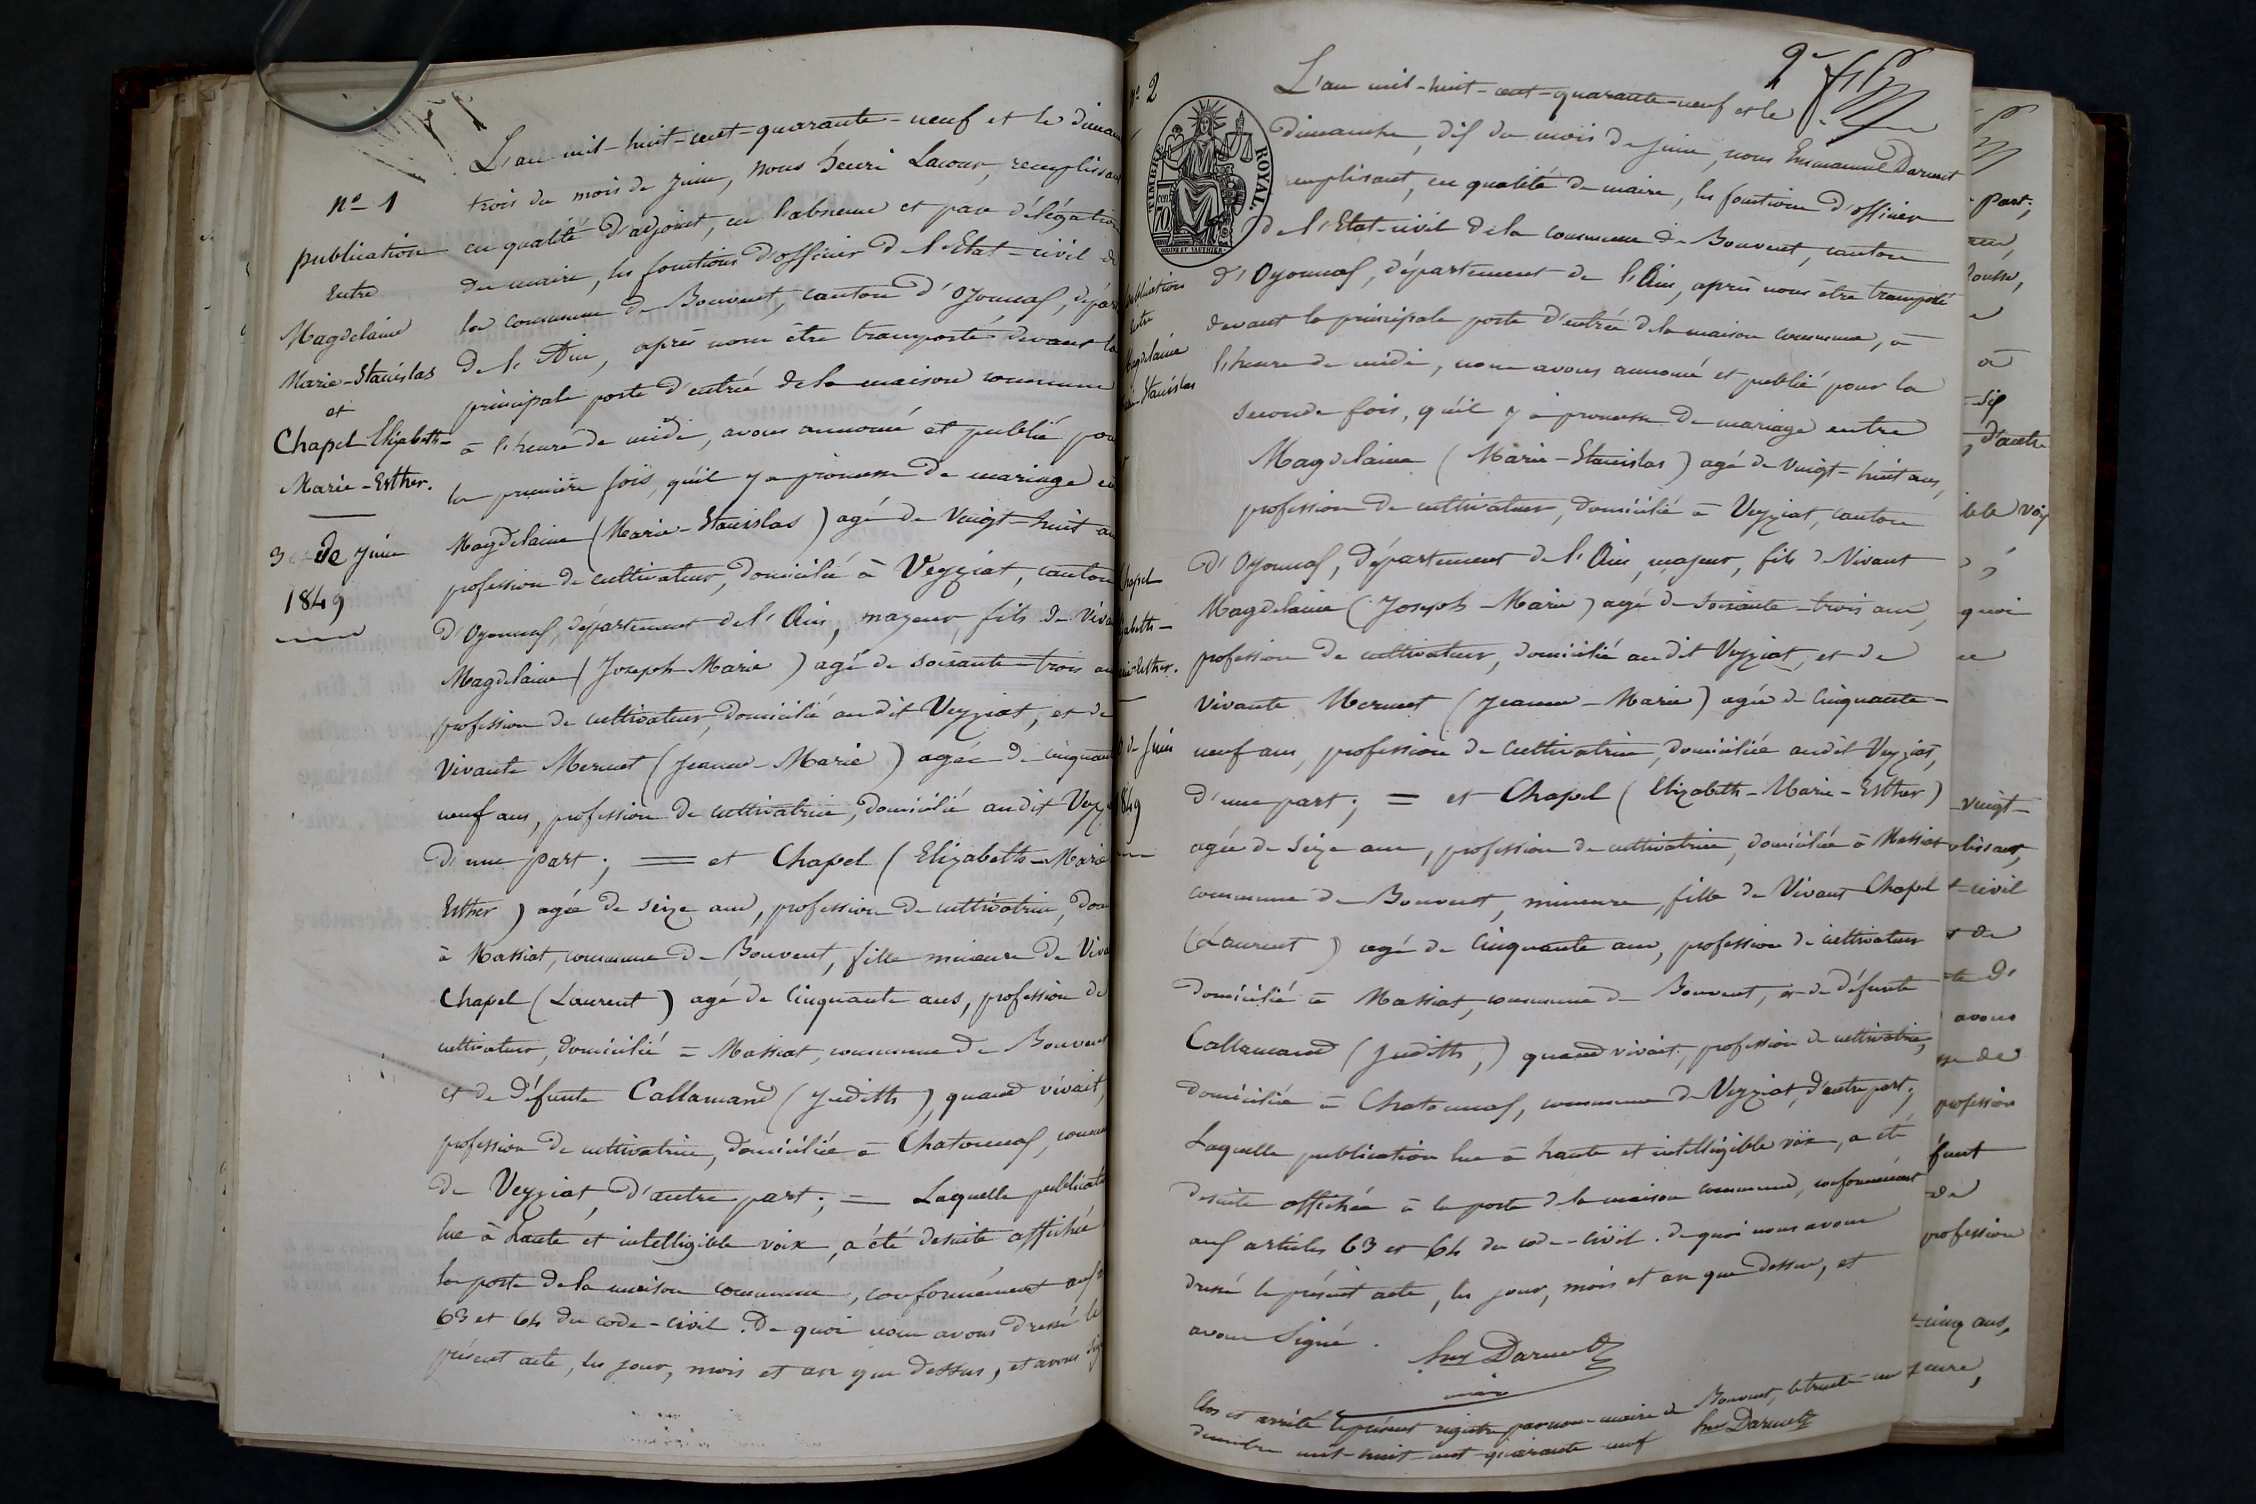 nº 1
publication
Entre
Magdelaine
Marie-Stanislas
et
Chapel Elizabeth-
Marie-Esther.
3 de juin
1849
L'an mil-huit-cent-quarante-neuf et le diman
trois du mois de juin, nous henri Lacour, remplissan
en qualité d'adjoint, en l'absence et par délégation
du maire, les fonctions d'officier de l'Etat-civil de
la commune de Bouvent, canton d'Oyonnax, dépar
de l'Ain, après nous être transporté devant la
principale porte d'entrée de la maison commune
à l'heure de midi, avons annoncé et publié pou
la première fois, qu'il y a promesse de mariage en
Magdelaine (Marie-Stanislas) agé de Vingt-huit an
profession de cultivateur, domicilié à Veyziat, canton
d'Oyonnax, département de l'Ain, majeur, fils de Viva
Magdelaine (Joseph-Marie) agé de soixante-trois an
profession de cultivateur, domicilié audit Veyziat, et de
Vivante Mermet (Jeanne-Marie) agée de cinquan
neuf ans, profession de cultivatrice, domicilié audit Veyz
d'une part; = et Chapel (Elizabeth-Marie
Esther) agée de seize ans, profession de cultivatrice, dom
à Massiat, commune de Bouvent, fille mineure de Viva
Chapel (Laurent) agé de Cinquante ans, profession de
cultivateur, domicilié à Massiat, commune de Bouvent
et de défunte Callamand (Judith), quand vivait,
profession de cultivatrice, domiciliée à Chatonnax, commu
de Veyziat, d'autre part; = Laquelle publicati
lue à haute et intelligible voix, a été desuite affichée
la porte de la maison commune, conformément aux
63 et 64 du code-civil. De quoi nous avons dressé le
présent acte, les jour, mois et an que dessus, et avons sig
2e
nº 2
TIMBRE ROYAL
70
publication
entre
Magdelaine
Marie-Stanislas
Chapel
Elizabeth-
Marie-Esther.
de juin
1849
L'an mil-huit-cent-quarante-neuf et le
dimanche, dix du mois de juin, nous Emmanuel Darmet
remplissant, en qualité de maire, les fonctions d'officier
de l'Etat-civil de la commune de Bouvent, canton
d'Oyonnax, département de l'Ain, après nous être transporté
devant la principale porte d'entrée de la maison commune, à
l'heure de midi, nous avons annoncé et publié pour la
seconde fois, qu'il y a promesse de mariage entre
Magdelaine (Marie-Stanislas) agé de Vingt-huit ans,
profession de cultivateur, domicilié à Veyziat, canton
d'Oyonnax, département de l'Ain, majeur, fils de Vivant
Magdelaine (Joseph-Marie) agé de soixante-trois ans,
profession de cultivateur, domicilié audit Veyziat, et de
Vivante Mermet (Jeanne-Marie) agée de Cinquante-
neuf ans, profession de cultivatrice, domiciliée audit Veyziat,
d'une part; = et Chapel (Elizabeth-Marie-Esther)
agée de seize ans, profession de cultivatrice, domiciliée à Massiat
commune de Bouvent, mineure, fille de Vivant Chapel
(Laurent) agé de Cinquante ans, profession de cultivateur
domicilié à Massiat, commune de Bouvent, et de défunte
Callamand (Judith,) quand vivait, profession de cultivatrice,
domiciliée à Chatonnax, commune de Veyziat, d'autre part;
Laquelle publication lue à haute et intelligible voix, a été
desuite affichée à la porte de la maison commune, conformément
aux articles 63 et 64 du code-civil. de quoi nous avons
dressé le présent acte, les jour, mois et an que dessus, et
avons signé.
Darmet
maire
Clos et arrêté le présent registre par nous-maire de Bouvent, le trente-un
decembre mil-huit-cent-quarante-neuf Darmet
part;
à
d'autre
voix
quoi
vingt-
plissant,
t-civil
de
avons
profession
funt
de
profession
cinq ans,